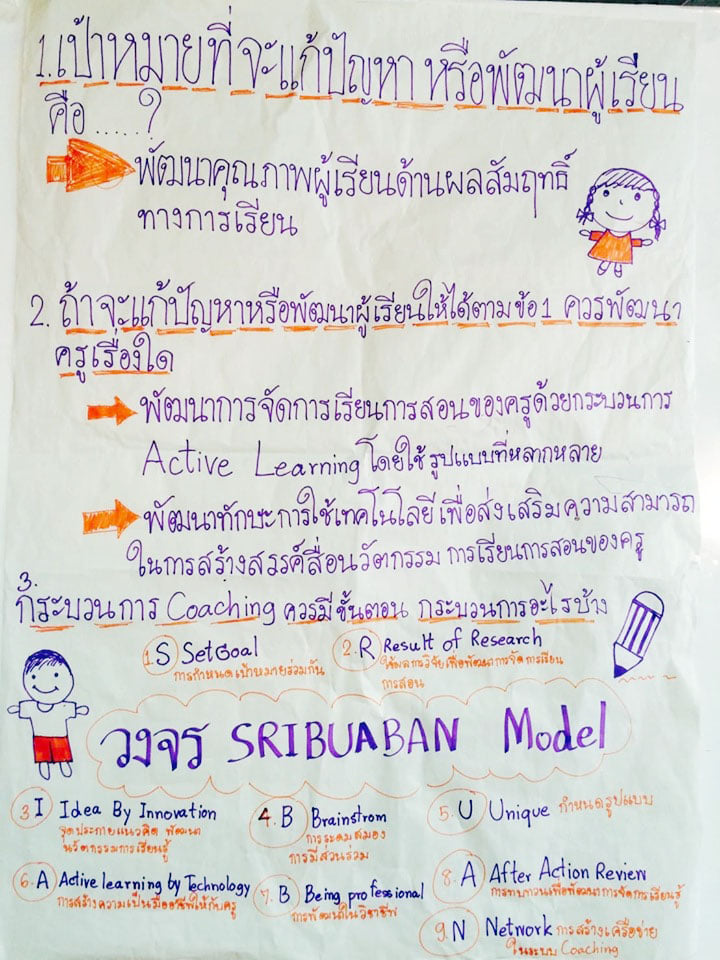 1.เป้าหมายที่จะแก้ปัญหา หรือพัฒนาผู้เรียน
คือ.....?
พัฒนาคุณภาพผู้เรียนด้านผลสัมฤทธิ์
ทางการเรียน
2. ถ้าจะแก้ปัญหาหรือพัฒนาผู้เรียนให้ได้ตามข้อ1 ควรพัฒนา
ครูเรื่องใด
พัฒนาการจัดการเรียนการสอนของครูด้วยกระบวนการ
Active Learning โดยใช้รูปแบบที่หลากหลาย
พัฒนาทักษะการใช้เทคโนโลยีเพื่อส่งเสริมความสามารถ
ในการสร้างสรรค์สื่อนวัตกรรม การเรียนการสอนของครู
3.
กระบวนการ Coaching ควรมีขั้นตอน กระบวนการอะไรบ้าง
1.S SetGoal
การกำหนดเป้าหมายร่วมกัน
2.R Result of Research
ใช้ผลการวิจัยเพื่อพัฒนาการจัดการเรียน
การสอน
วงจร SRIBUABAN Model
3 I Idea By Innovation
จุดประกายแนวคิด พัฒนา
นวัตกรรมการเรียนรู้
4.B Brainstrom
การระดมสมอง
การมีส่วนร่วม
5.U Unique กำหนดรูปแบบ
6.A Active learning by Technology
การสร้างความเป็นมืออาชีพให้กับครู
7.B Being professional
การพัฒนาในวิชาชีพ
8.A After Action Review
การทบทวนเพื่อพัฒนาการจัดการเรียนรู้
9.N Network การสร้างเครือข่าย
ในระบบ Coaching